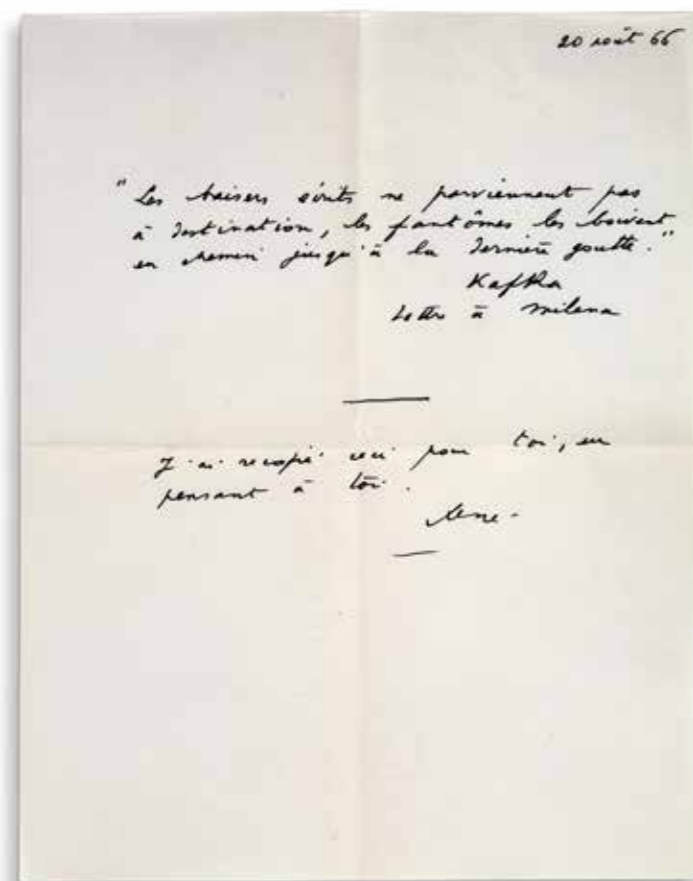 20 août 66
"Les baisers écrits ne parviennent pas
à destination, les fantômes les boivent
en chemin jusqu'à la dernière goutte."
Kafka
Lettre à Milena
J'ai recopié ceci pour toi, en
pensant à toi.